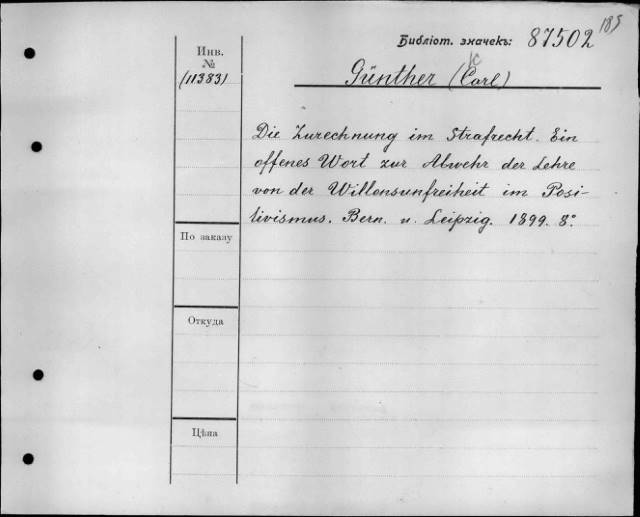 185
Библіот. значекъ: 87502
Инв.
№
(11383)
K
Günther (Carl)
Die Zurechnung im Strafrecht. Ein
offenes Wort zur Abwehr der Lehre
von der Willensunfreiheit im Posi-
tivismus. Bern. u. Leipzig. 1899. 8°.
По заказу
Откуда
Цѣна